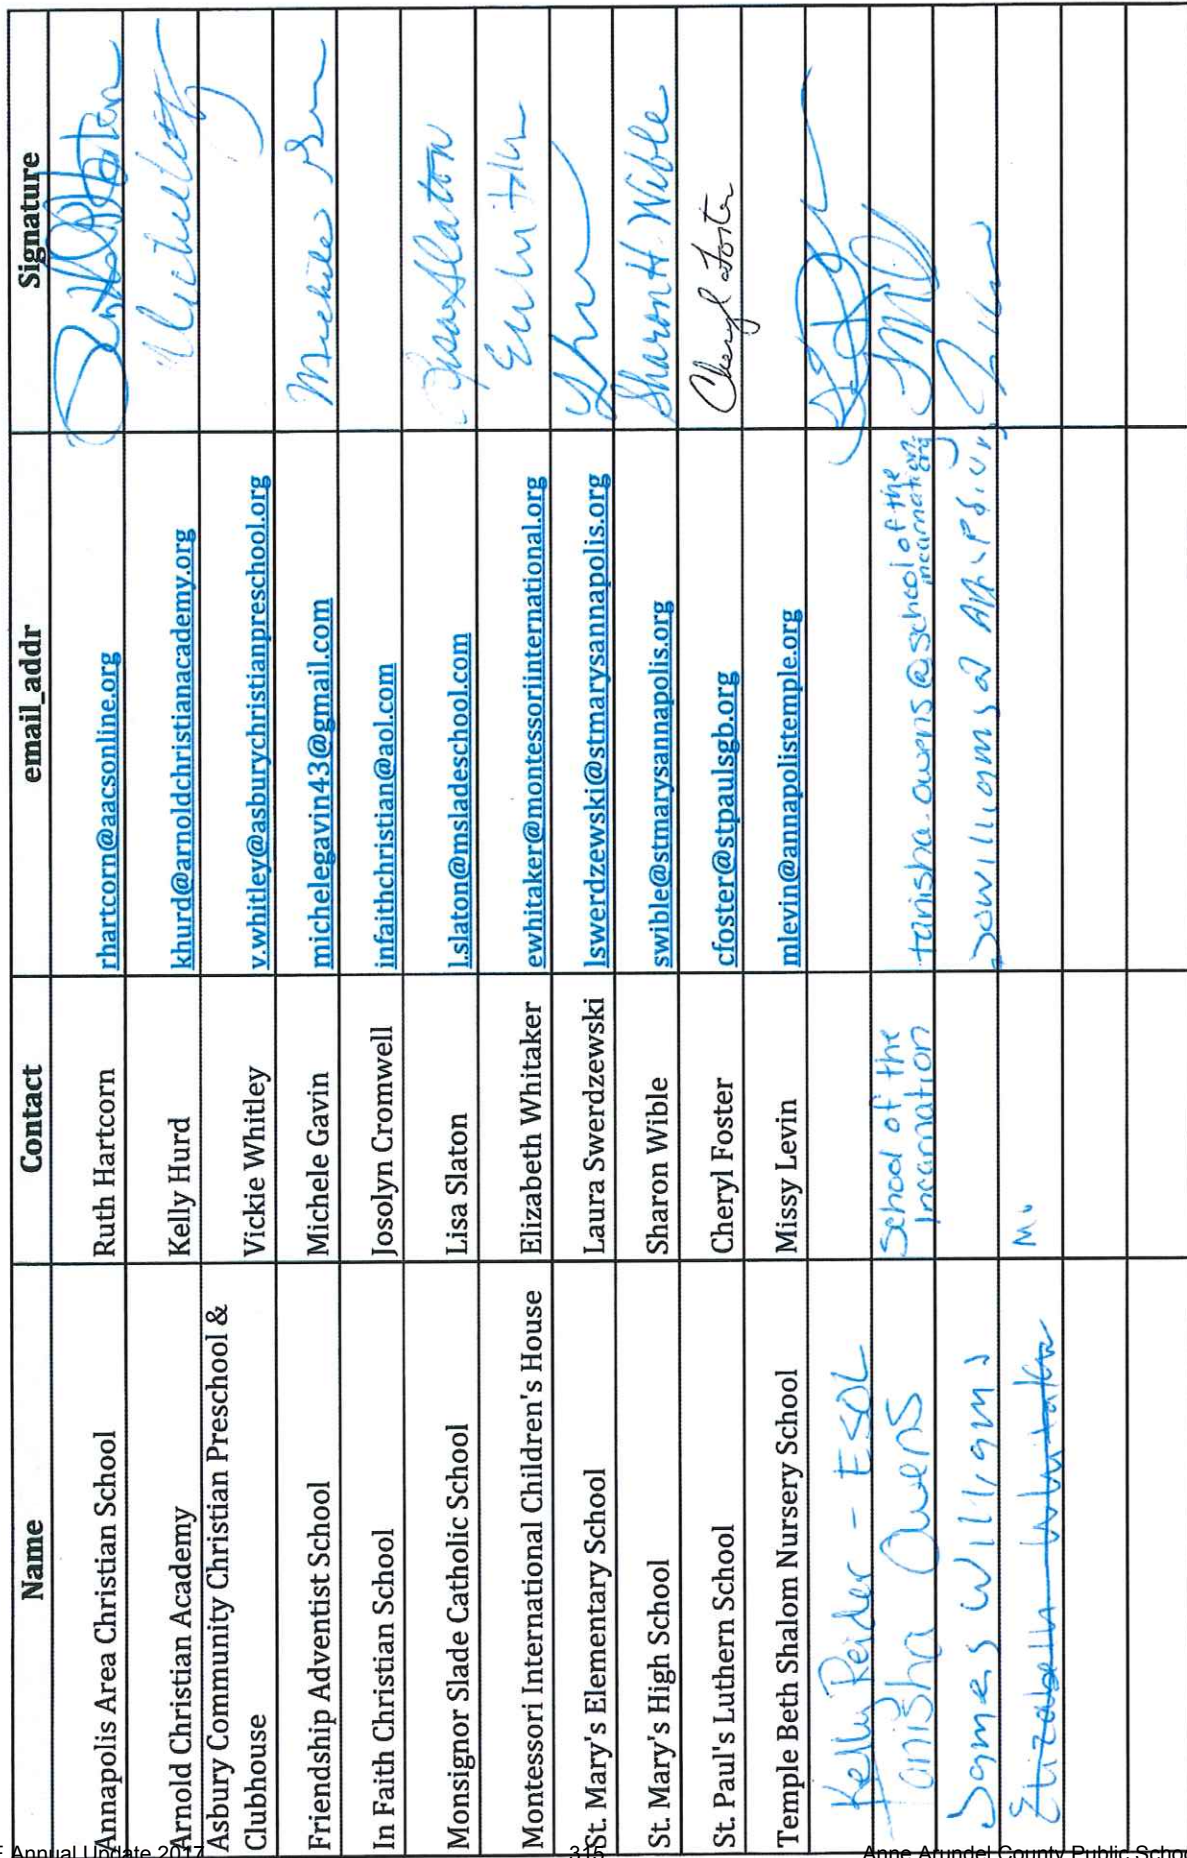 Name Contact email_addr Signature
Annapolis Area Christian School Ruth Hartcorn rhartcorn@aacsonline.org
Arnold Christian Academy Kelly Hurd khurd@arnoldchristianacademy.org
Asbury Community Christian Preschool &
Clubhouse Vickie Whitley v.whitley@asburychristianpreschool.org
Friendship Adventist School Michele Gavin michelegavin43@gmail.com Michele
In Faith Christian School Josolyn Cromwell infaithchristian@aol.com
Monsignor Slade Catholic School Lisa Slaton l.slaton@msladeschool.com Lisa Slaton
Montessori International Children's House Elizabeth Whitaker ewhitaker@montessoriinternational.org
St. Mary's Elementary School Laura Swerdzewski lswerdzewski@stmarysannapolis.org
St. Mary's High School Sharon Wible swible@stmarysannapolis.org Sharon H. Wible
St. Paul's Luthern School Cheryl Foster cfoster@stpaulsgb.org Cheryl Foster
Temple Beth Shalom Nursery School Missy Levin mlevin@annapolistemple.org
Kelly Reider - ESOL
Tanisha Owens School of the
Incarnation tanisha.owens@schoolofthe
incarnation.org
James Williams
Elizabeth Whitaker M.
Annual Update 2017 315 Anne Arundel County Public Schoo